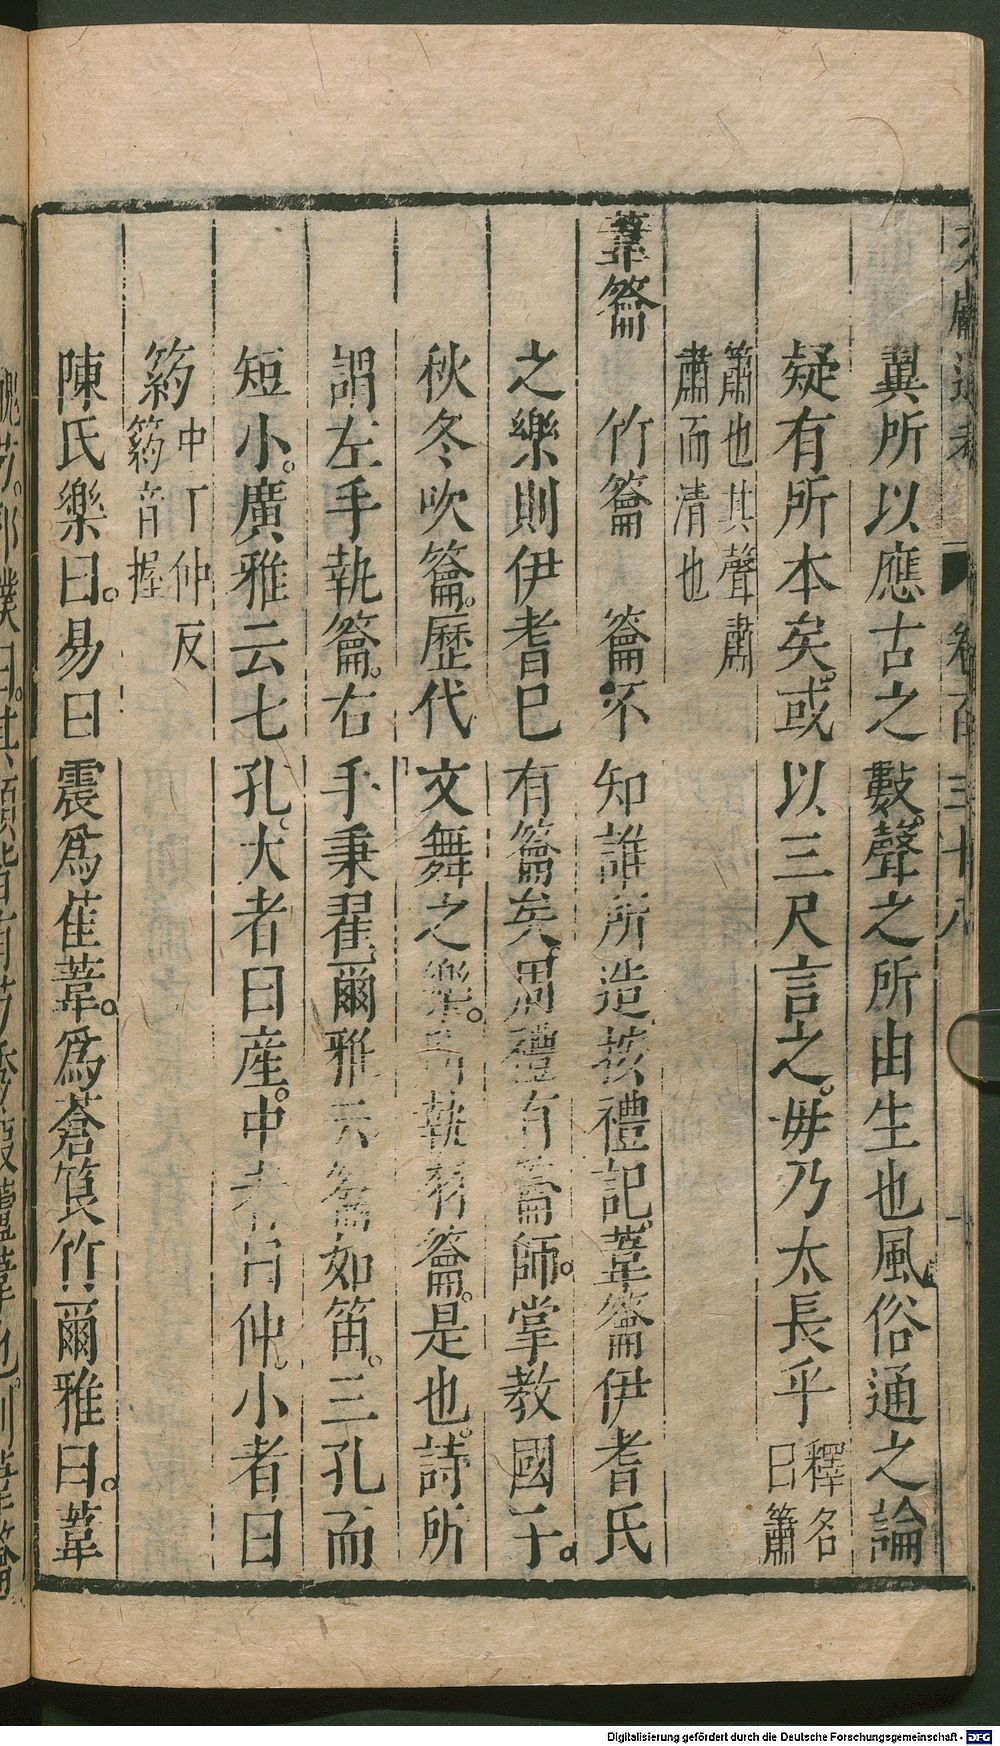 卷百三十八
翼所以應古之數聲之所由生也風俗通之論
疑有所本矣或以三尺言之毋乃太長乎釋名曰簫
簫也其聲肅
肅而清也
葦籥 竹籥 籥不知誰所造按禮記葦籥伊耆氏
之樂則伊耆已有籥矣周禮有籥師掌教國子
秋冬吹籥歷代文舞之樂所執羽籥是也詩所
謂左手執籥右手秉翟爾雅云籥如笛三孔而
短小廣雅云七孔大者曰産中者曰仲小者曰
箹中丁仲反箹音握
陳氏樂曰易曰震爲萑葦爲蒼筤竹爾雅曰葦
Digitalisierung gefördert durch die Deutsche Forschungsgemeinschaft - DFG